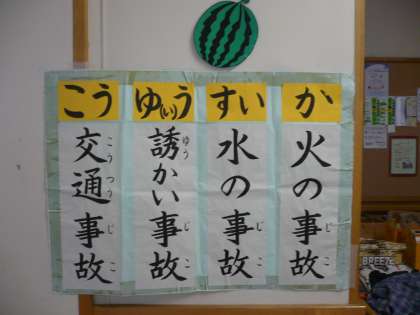 か
火の事故
じこ
すい
水の事故
じこ
ゆ(う)う
誘かい事故
ゆう
じこ
こう
交通事故
こうつうじこ
BREEZE